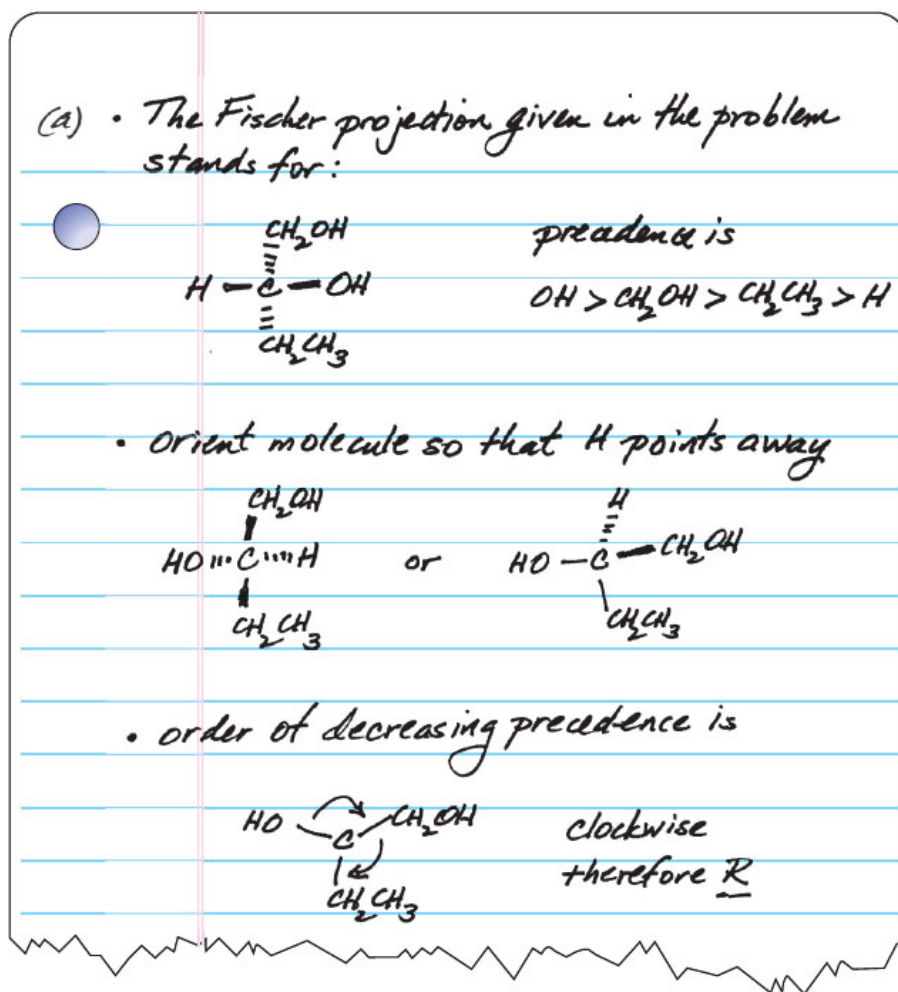 (a) • The Fischer projection given in the problem
stands for:
CH₂OH
H — C — OH
CH₂CH₃
precedence is
OH > CH₂OH > CH₂CH₃ > H
• orient molecule so that H points away
CH₂OH
HO C H
CH₂CH₃
or
H
HO — C — CH₂OH
CH₂CH₃
• order of decreasing precedence is
HO CH₂OH
C
CH₂CH₃
clockwise
therefore R